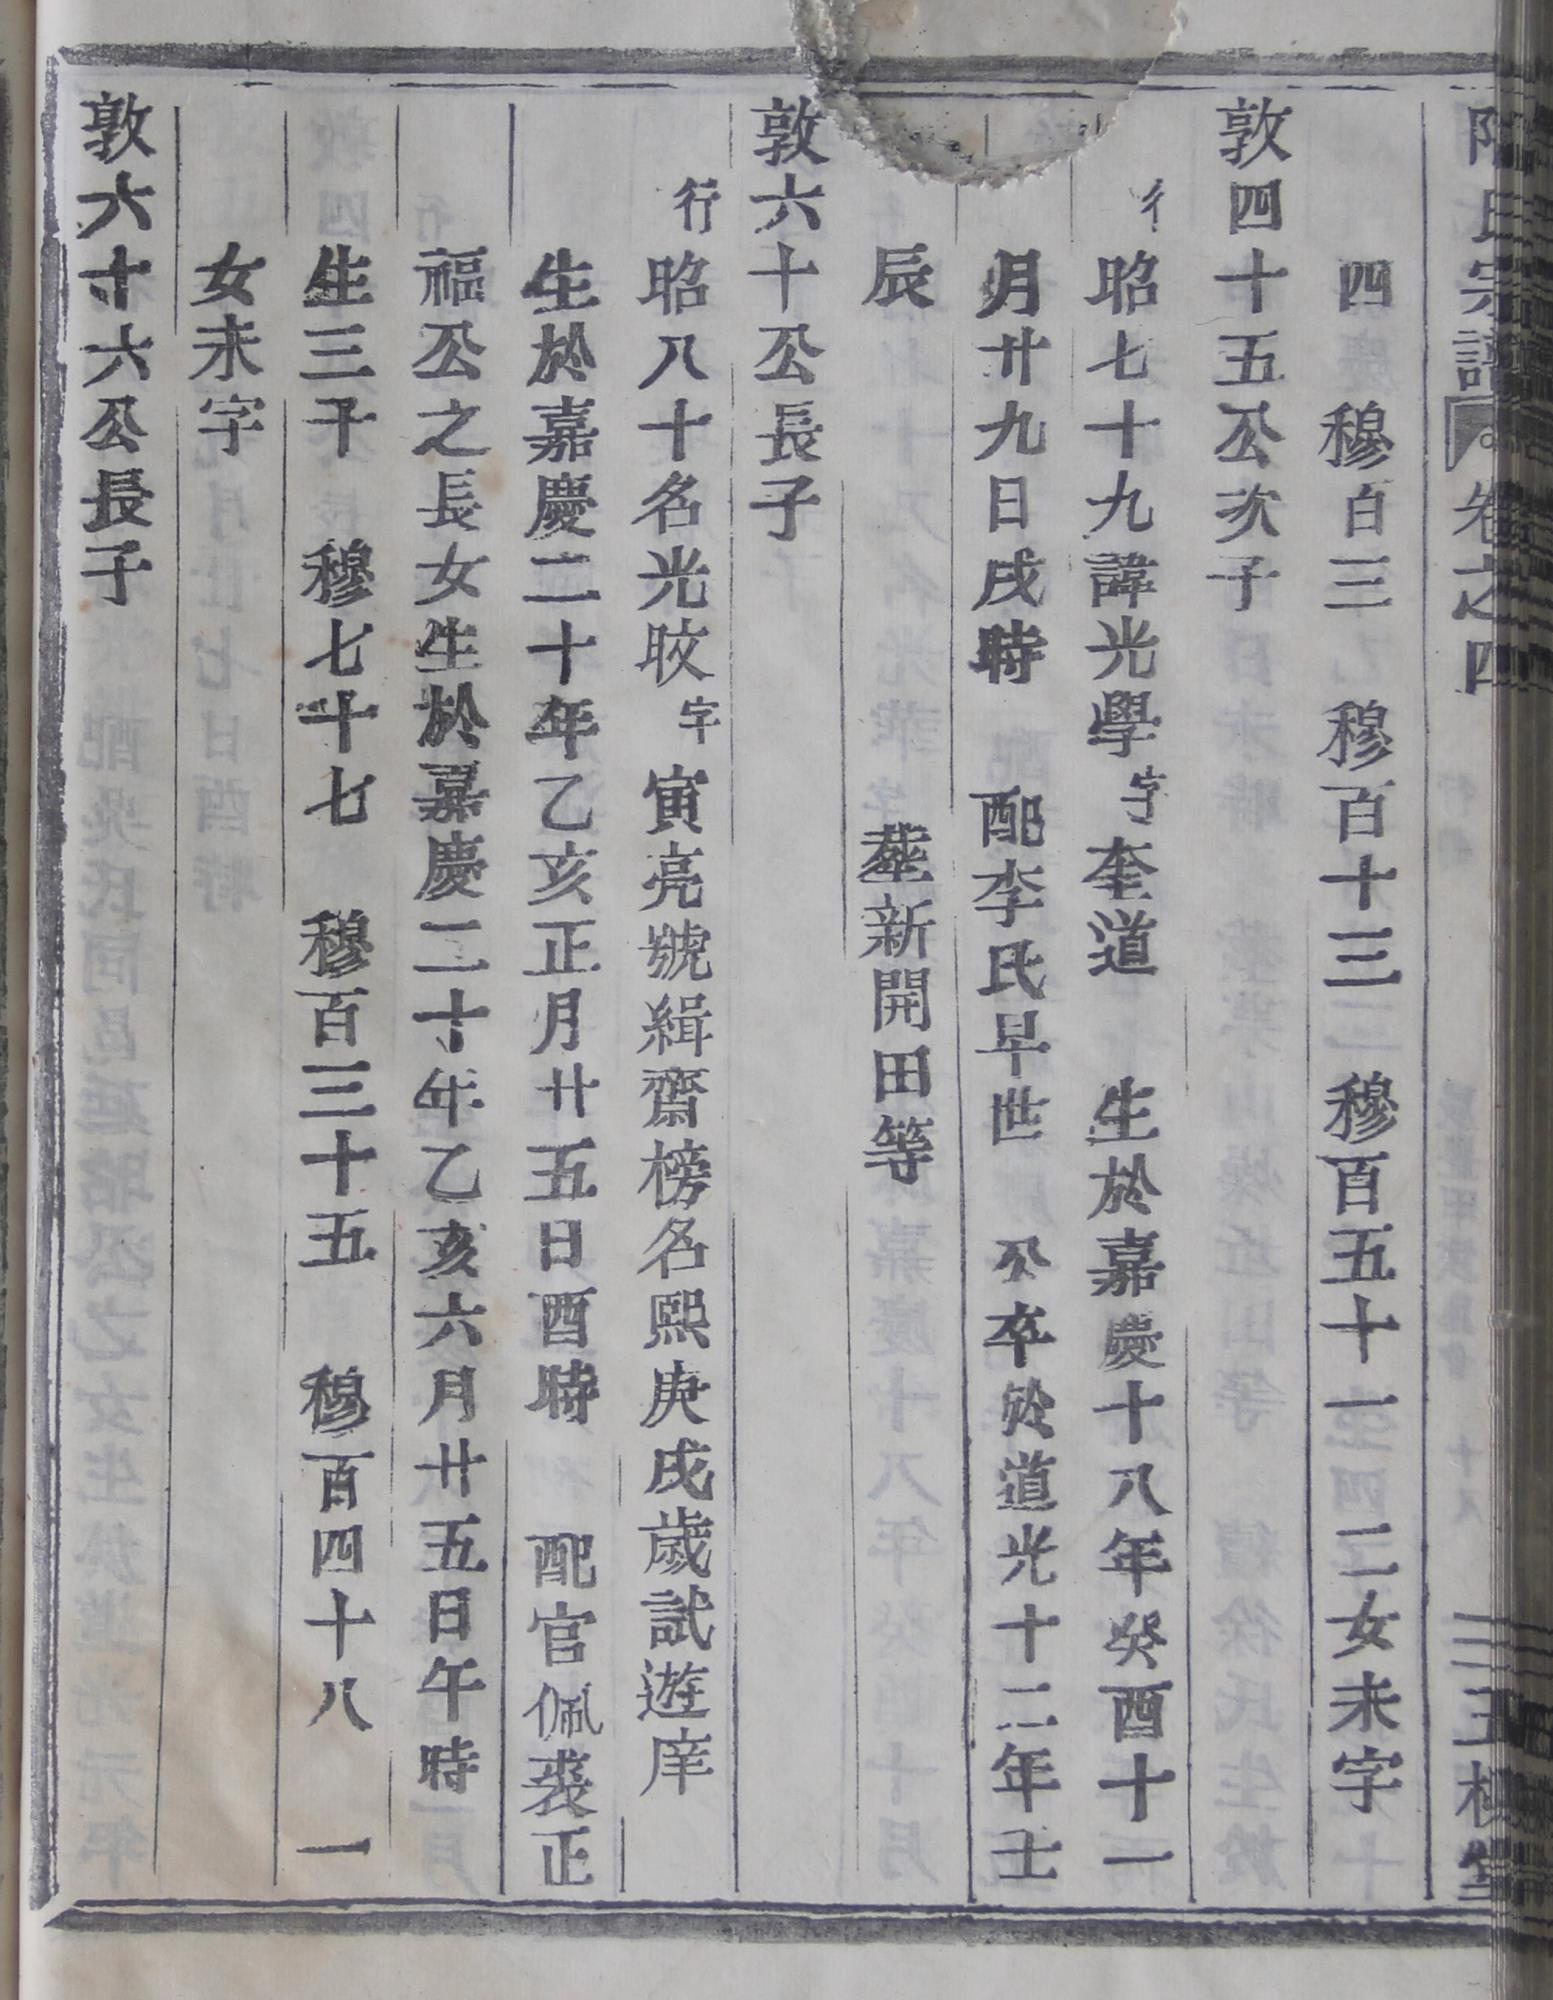 氏宗譜 卷之四
四 穆百三 穆百十三 穆百五十一 二女未字
敦四十五公次子
行昭七十九諱光學字奎道 生於嘉慶十八年癸酉十一
月廿九日戌時 配李氏早世 公卒於道光十二年壬
辰 塟新開田等
敦六十公長子
行昭八十名光旼字寅亮號緝齋榜名熙庚戌歲試遊庠
生於嘉慶二十年乙亥正月廿五日酉時 配官佩裘正
福公之長女生於嘉慶二十年乙亥六月廿五日午時
生三子 穆七十七 穆百三十五 穆百四十八 一
女未字
敦六十六公長子